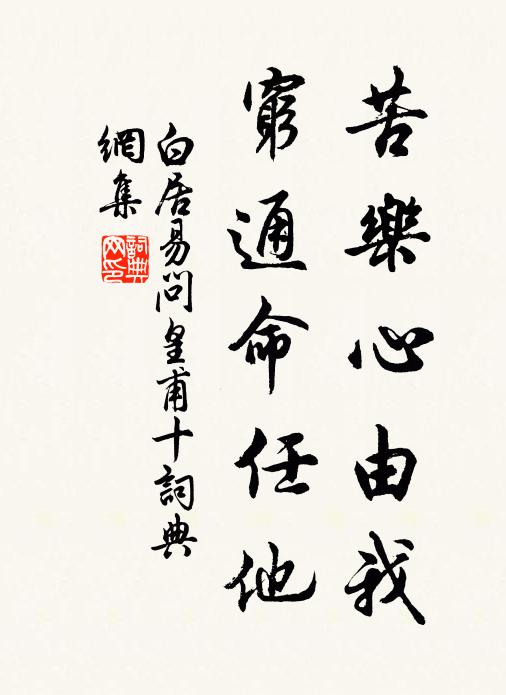 苦樂心由我
窮通命任他
白居易問皇甫十詞典
網集
詞典
网印